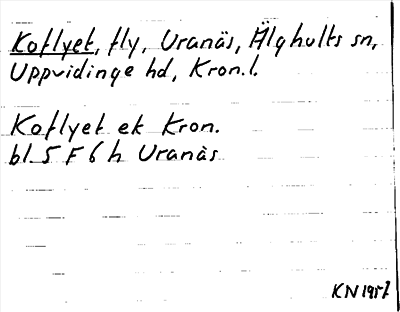 Koflyet, fly, Uranäs, Älghults sn,
Uppvidinge hd, Kron.l.
Koflyet ek Kron.
bl. 5 F 6 h Uranäs
KN 1957